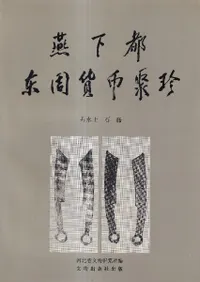 燕下都
东周货币聚珍
石永士 石磊
河北省文物研究所编
文物出版社出版